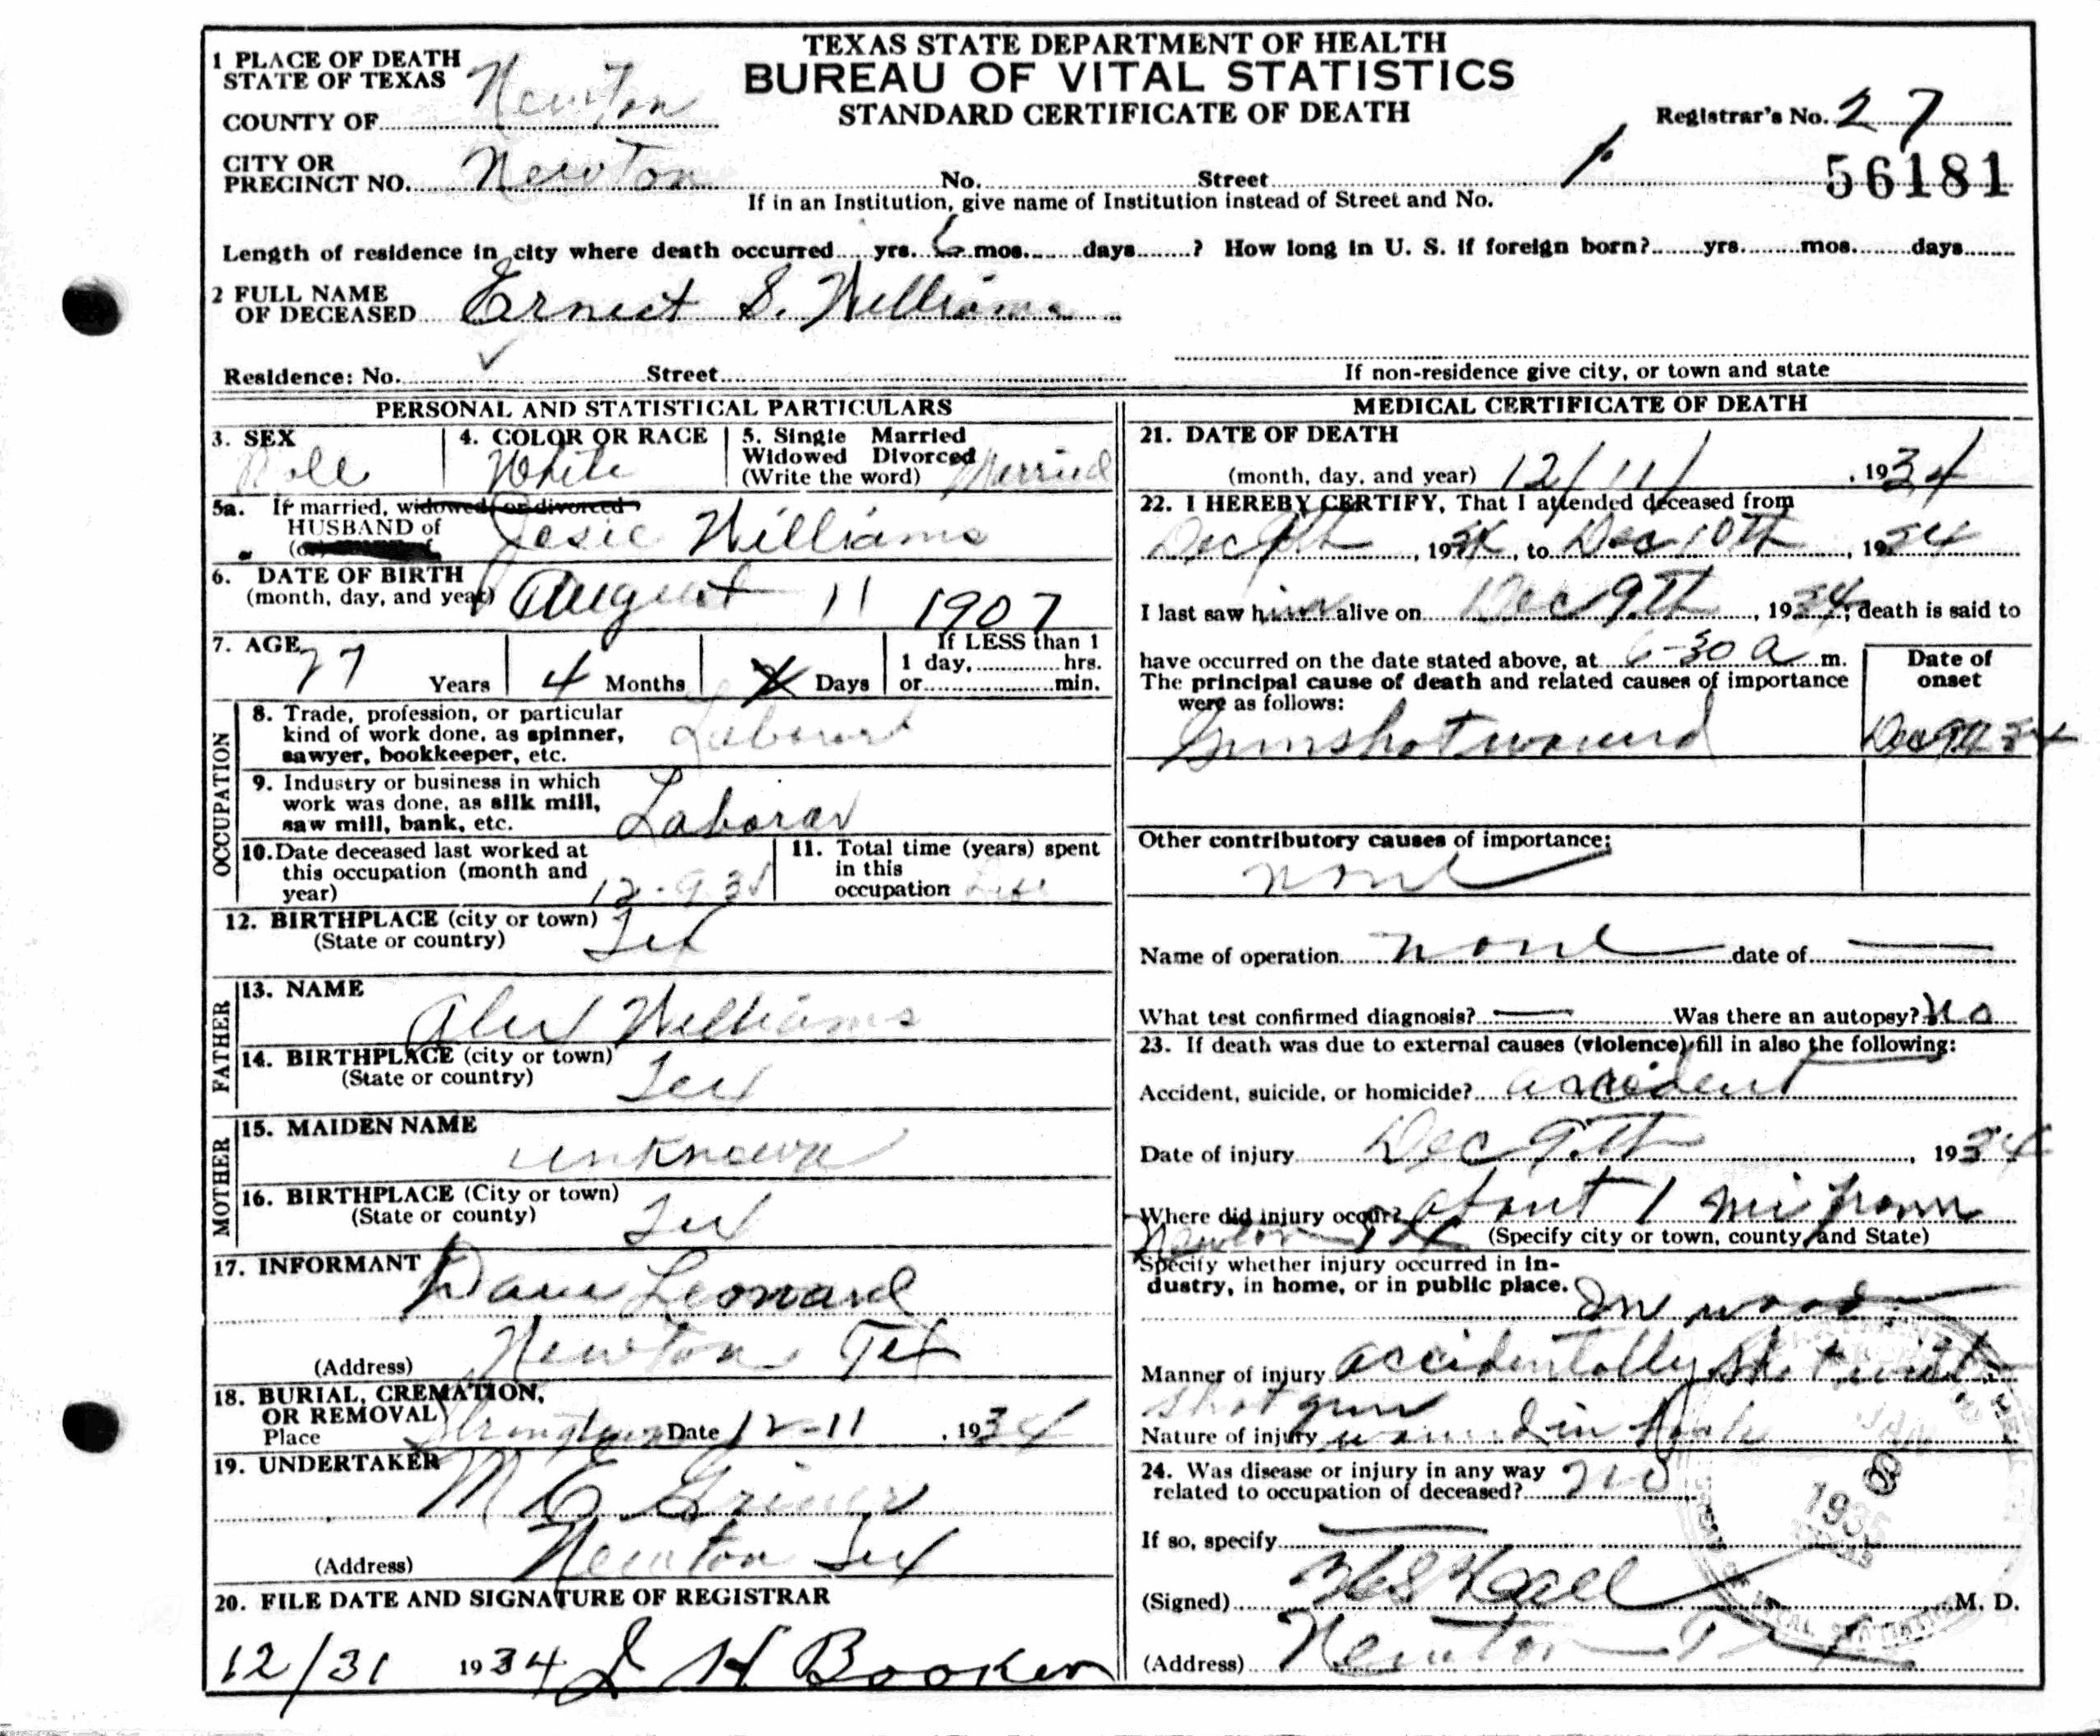 TEXAS STATE DEPARTMENT OF HEALTH
BUREAU OF VITAL STATISTICS
STANDARD CERTIFICATE OF DEATH
1 PLACE OF DEATH
STATE OF TEXAS
COUNTY OF Newton
Registrar's No. 27
CITY OR
PRECINCT NO. Newton No. Street 1. 56181
If in an Institution, give name of Institution instead of Street and No.
Length of residence in city where death occurred yrs. 6 mos. days ? How long in U. S. if foreign born? yrs. mos. days
2 FULL NAME
OF DECEASED Ernest S. Williams
Residence: No. Street
If non-residence give city, or town and state
PERSONAL AND STATISTICAL PARTICULARS
3. SEX
4. COLOR OR RACE
White
5. Single Married
Widowed Divorced
(Write the word) Married
5a. If married, widowed, or divorced
HUSBAND of
(or Jesie Williams
6. DATE OF BIRTH
(month, day, and year) August 11 1907
7. AGE
27 Years 4 Months Days
If LESS than 1
1 day, hrs.
or min.
OCCUPATION
8. Trade, profession, or particular
kind of work done, as spinner,
sawyer, bookkeeper, etc.
9. Industry or business in which
work was done, as silk mill,
saw mill, bank, etc. Laborar
10. Date deceased last worked at
this occupation (month and
year) 12-9-34
11. Total time (years) spent
in this
occupation Life
12. BIRTHPLACE (city or town)
(State or country) Tex
FATHER
13. NAME
Alex Williams
14. BIRTHPLACE (city or town)
(State or country) Tex
MOTHER
15. MAIDEN NAME
unknown
16. BIRTHPLACE (City or town)
(State or county) Tex
17. INFORMANT
Dave Leonard
(Address) Newton Tex
18. BURIAL, CREMATION,
OR REMOVAL
Place Date 12-11, 1934
19. UNDERTAKER
M E Griner
(Address) Newton Tex
20. FILE DATE AND SIGNATURE OF REGISTRAR
12/31 1934 J H Booker
MEDICAL CERTIFICATE OF DEATH
21. DATE OF DEATH
(month, day, and year) 12/11/, 1934
22. I HEREBY CERTIFY, That I attended deceased from
Dec 9th, 1934, to Dec 10th, 1934
I last saw him alive on Dec 9th, 1934; death is said to
have occurred on the date stated above, at 6-30 a m.
The principal cause of death and related causes of importance
were as follows:
Date of
onset
Gunshot wound Dec 9th 34
Other contributory causes of importance:
none
Name of operation none date of —
What test confirmed diagnosis? — Was there an autopsy? No
23. If death was due to external causes (violence) fill in also the following:
Accident, suicide, or homicide? accident
Date of injury Dec 9th, 1934
Where did injury occur? about 1 mi from
Newton Tex (Specify city or town, county, and State)
Specify whether injury occurred in in-
dustry, in home, or in public place. In woods
Manner of injury accidentally shot with
shot gun
Nature of injury wound in
24. Was disease or injury in any way
related to occupation of deceased? no
If so, specify
(Signed) M. D.
(Address) Newton Tex
1935